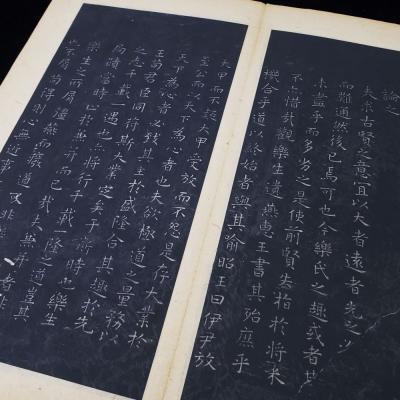 論之
夫求古賢之意宜以大者遠者先之必
而難通然後已焉可也今樂氏之趣或者其
未盡乎而多劣之是使前賢失指於將來
不亦惜哉觀樂生遺燕惠王書其殆庶乎
機合乎道以終始者與其喻昭王曰伊尹放
大甲而不疑大甲受放而不怨是存大業於
至公而以天下為心者也夫欲極道之量務以
天下為心者必致其主於盛隆合其趣於先
王苟君臣同符斯大業定矣于斯時也樂生
之志千載一遇也亦將行千載一隆之道豈其
局蹟當時止於兼并而已哉夫兼并者非
樂生之所屑彊燕而廢道又非
也不屑苟得則心無近事